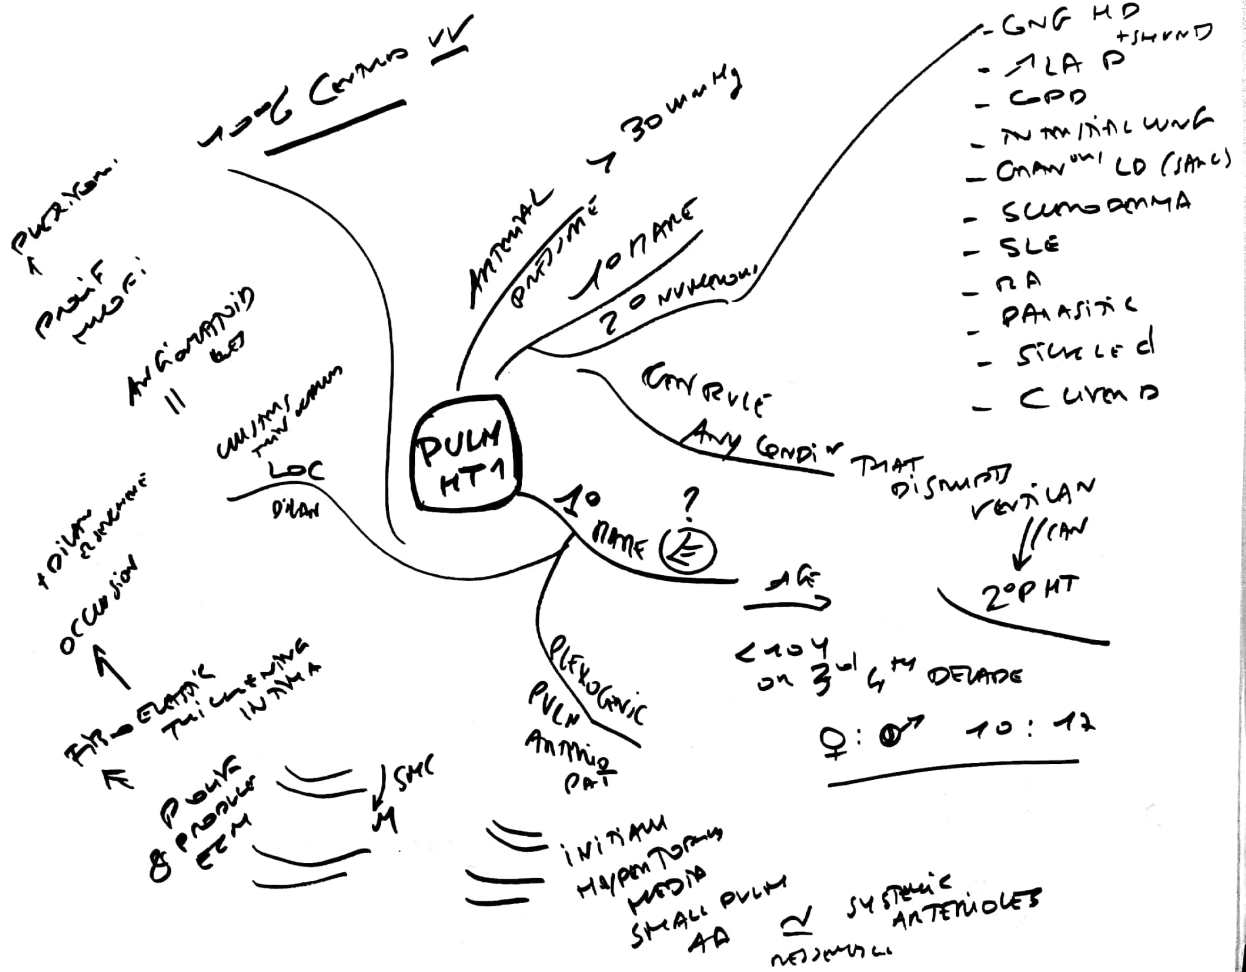 PULM
HT1
ARTERIAL
PRESSURE
30 mmHg
1° RARE
2° NUMEROUS
- CNG HD
+ SHUND
- ↗ LA P
- COPD
- LD (SARC)
- SCLERODERMA
- SLE
- RA
- PARASITIC
- SICKLE d
- C LIVER D
GEN RULE
ANY CONDIN THAT
DISRUPTD
VENTILAN
CAN
2° PHT
1°
RARE
?
AGE
< 10 Y
OR 3rd 4th DECADE
♀ : ♂ 10 : 12
PLEXOGENIC
PULM
ARTERIO
PAT
INITIALLY
MEDIA
SMALL PULM
AA
≃ SYSTEMIC
ARTERIOLES
SMC
M
PROLIF
& PRODUCE
ECM
FIB ELASTIC
THICKENING
INTIMA
OCCLUSION
+ DILAN
LOC
DILAN
ANGIOMATOID
||
PROLIF
PLEXIFORM